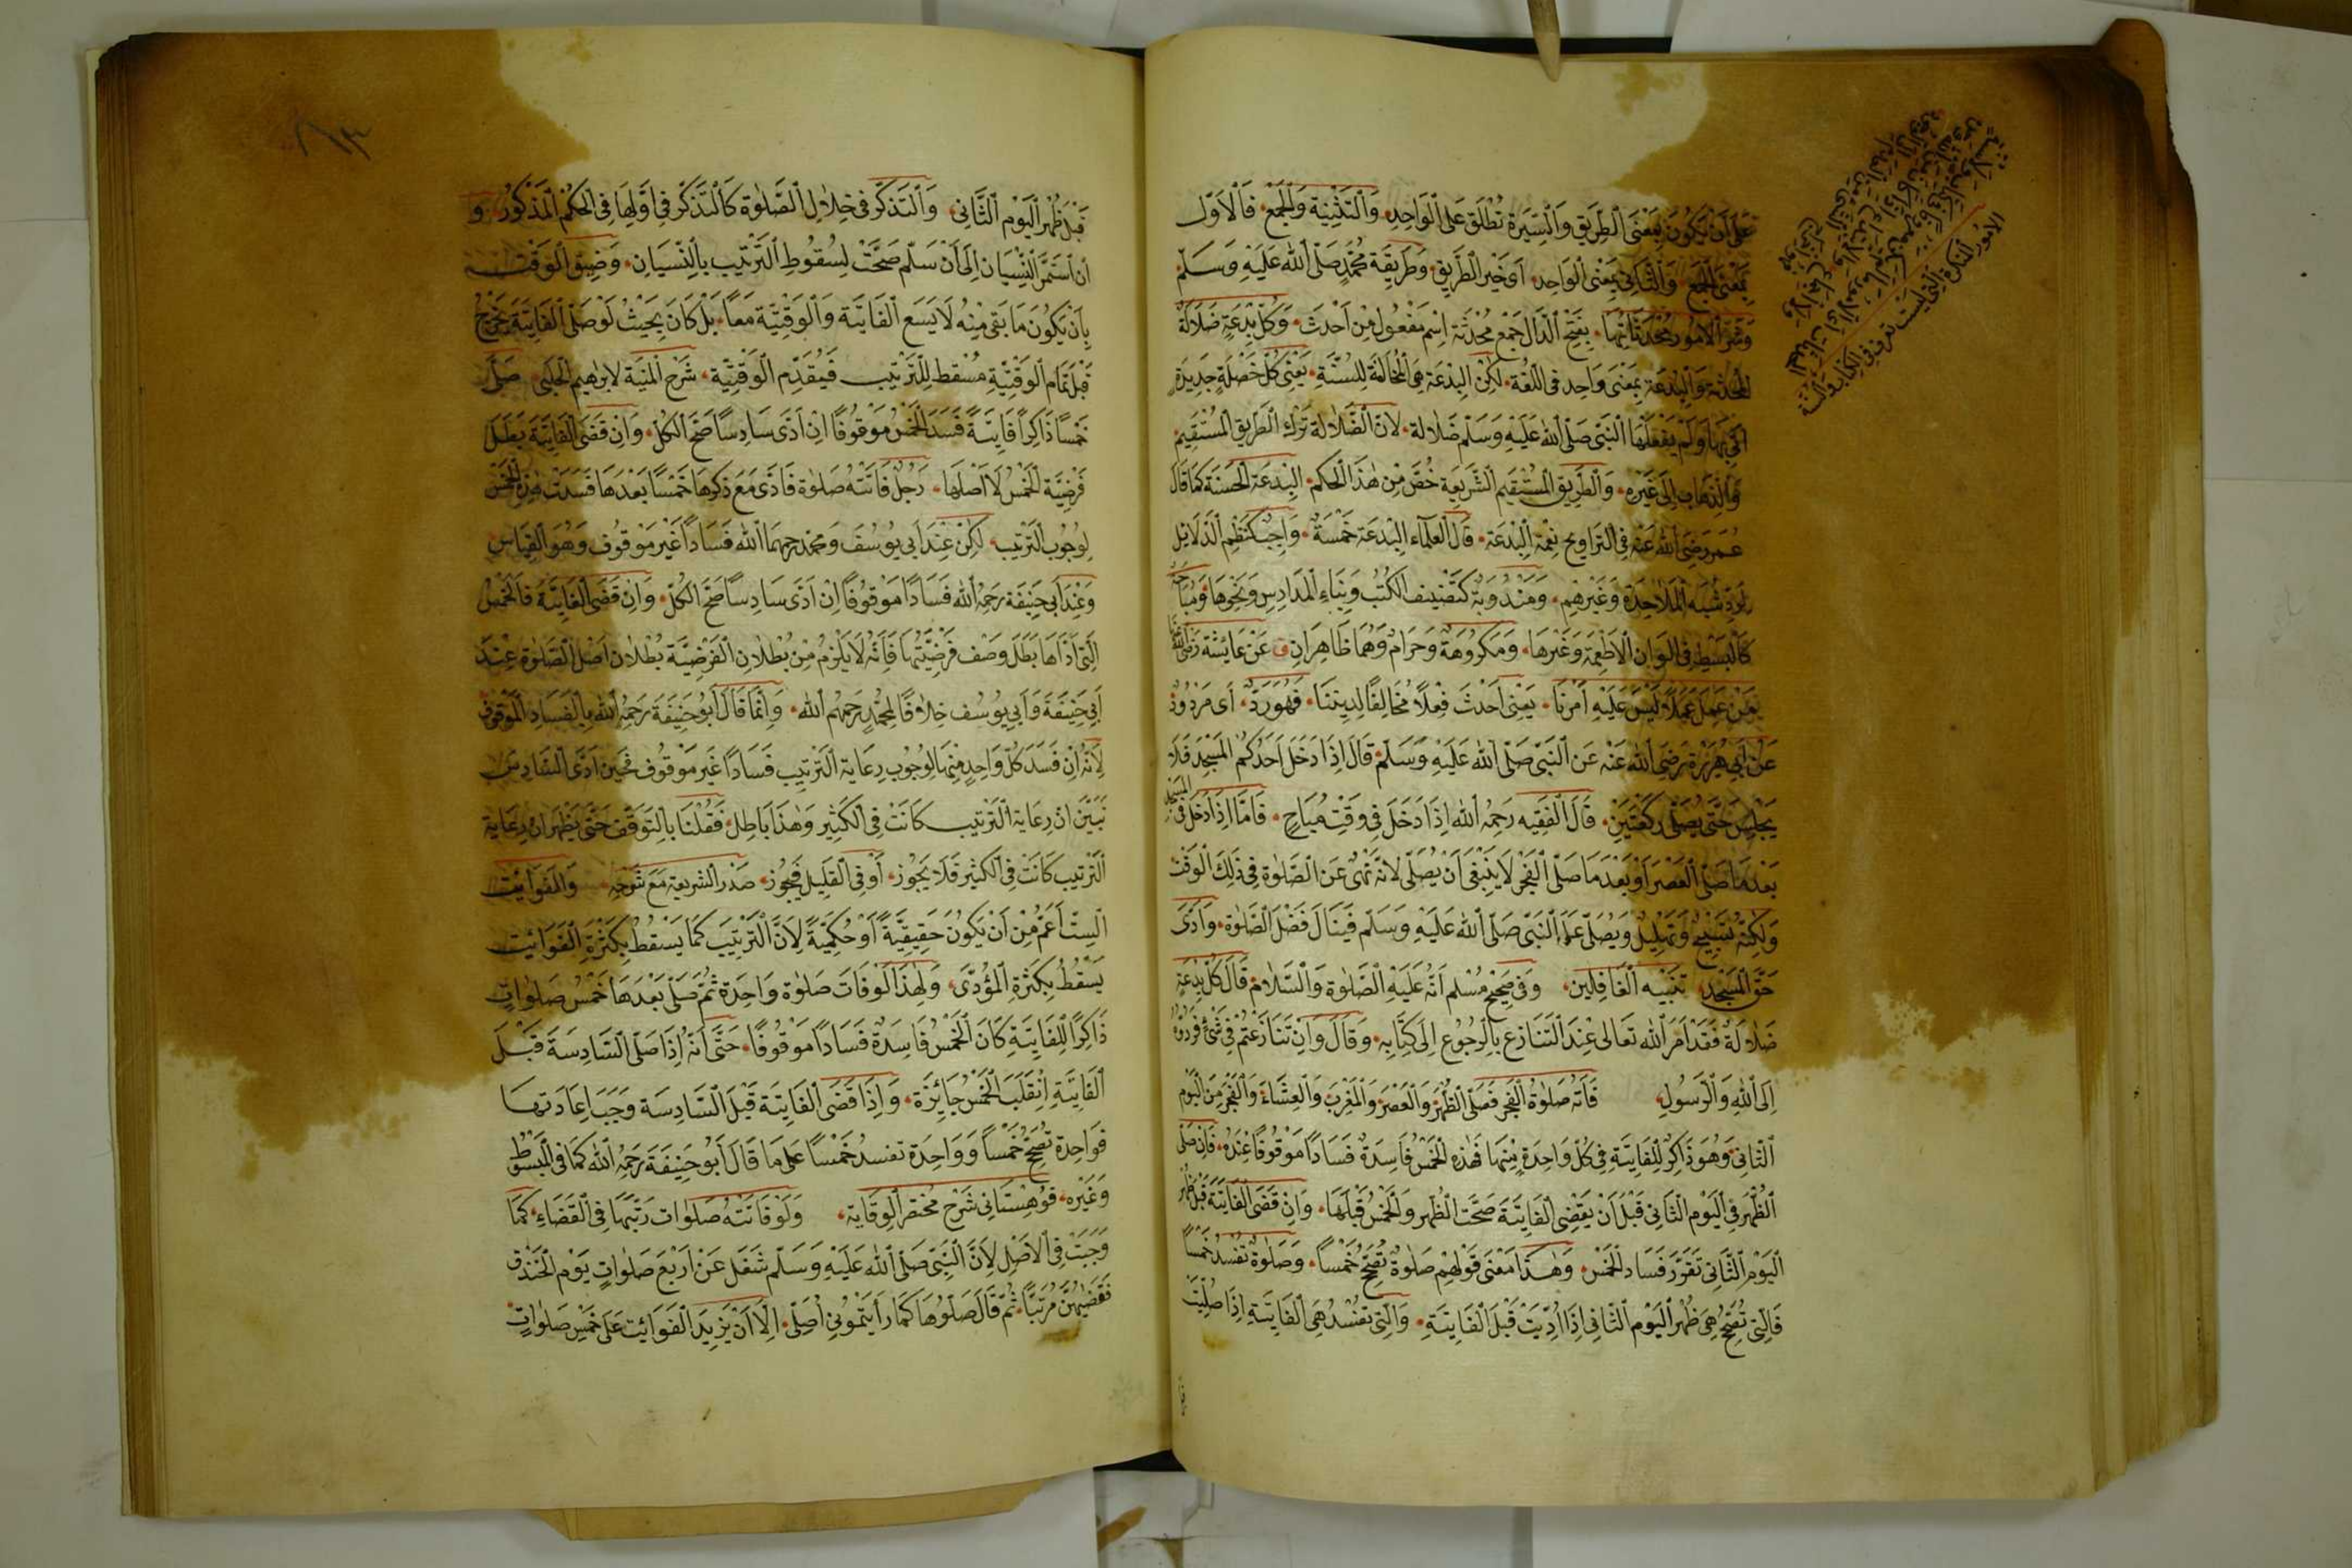 على أن يكون بمعنى الطريق والسيرة تطلق على الواحد والتثنية والجمع فالأول
بمعنى الجمع والثاني بمعنى الواحد أي خير الطريق وطريقة محمد صلى الله عليه وسلم
وشر الأمور محدثاتها بفتح الدال جمع محدثة إسم مفعول من أحدث وكل بدعة ضلالة
المحدثة والبدعة بمعنى واحد في اللغة لكن البدعة هي المخالفة للسنة يعنى كل خصلة جديدة
أتي بها ولم يفعلها النبي صلى الله عليه وسلم ضلالة لأن الضلالة ترك الطريق المستقيم
والذهاب إلى غيره والطريق المستقيم الشريعة خص من هذا الحكم البدعة الحسنة كما قال
عمر رضي الله عنه في التراويح نعمة البدعة قال العلماء البدعة خمسة واجبة كنظم الدلايل
لرد شبه الملاحدة وغيرهم ومندوبة كتصنيف الكتب وبناء المدارس ونحوها ومباحة
كالبسط في الوان الأطعمة وغيرها ومكروهة وحرام وهما ظاهران ق عن عايشة رضي الله عنها
من عمل عملا ليس عليه أمرنا يعنى أحدث فعلا مخالفا لديننا فهو رد أي مردود
عن أبي هريرة رضي الله عنه عن النبي صلى الله عليه وسلم قال إذا دخل أحدكم المسجد فلا
يجلس حتى يصلى ركعتين قال الفقيه رحمه الله إذا دخل في وقت مباح فاما إذا دخل في المسجد
بعد ما صلى العصر أو بعد ما صلى الفجر لا ينبغي أن يصلى لأنه نهى عن الصلوة في ذلك الوقت
ولكنه يسبح ويهلل ويصلى على النبي صلى الله عليه وسلم فينال فضل الصلوة وأدى
حق المسجد تنبيه الغافلين وفي صحيح مسلم أنه عليه الصلوة والسلام قال كل بدعة
ضلالة فقد أمر الله تعالى عند التنازع بالرجوع إلى كتابه وقال وإن تنازعتم في شيء فردوه
إلى الله والرسول فاته صلوة الفجر فصلى الظهر والعصر والمغرب والعشاء والفجر من اليوم
الثاني وهو ذاكر للفايتة في كل واحدة منها فهذه الخمس فاسدة فسادا موقوفا عنده فإن صلى
الظهر في اليوم الثاني قبل أن يقضى الفايتة صحت الظهر والخمس قبلها وإن قضى الفايتة قبل ظهر
اليوم الثاني تقرر فساد الخمس وهذا معنى قولهم صلوة تصحح خمسا وصلوة تفسد خمسا
فالتي تصحح هي ظهر اليوم الثاني إذا أديت قبل الفايتة والتي تفسد هي الفايتة إذا صليت
قبل ظهر اليوم الثاني والتذكر في خلال الصلوة كالتذكر في أولها في الحكم المذكور و
ان استمر النسيان إلى أن سلم صحت لسقوط الترتيب بالنسيان وضيق الوقت
بأن يكون ما بقي منه لا يسع الفايتة والوقتية معا بل كان بحيث لو صلى الفايتة يخرج
قبل تمام الوقتية مسقط للترتيب فيقدم الوقتية شرح المنية لابرهيم الحلبي صلى
خمسا ذاكرا فايتة فسد الخمس موقوفا ان ادى سادسا صح الكل وان قضى الفايتة بطل
فرضية الخمس لا أصلها رجل فاتته صلوة فادى مع ذكرها خمسا بعدها فسدت هذه الخمس
لوجوب الترتيب لكن عند أبي يوسف ومحمد رحمهما الله فسادا غير موقوف وهو القياس
وعند أبي حنيفة رحمه الله فسادا موقوفا إن ادى سادسا صح الكل وان قضى الفايتة فالخمس
التي أداها بطل وصف فرضيتها فانه لا يلزم من بطلان الفرضية بطلان أصل الصلوة عند
أبي حنيفة وأبي يوسف خلافا لمحمد رحمهم الله وإنما قال أبو حنيفة رحمه الله بالفساد الموقوف
لأنه إن فسد كل واحد منها لوجوب رعاية الترتيب فسادا غير موقوف فحين ادى السادس
تبين ان رعاية الترتيب كانت في الكثير وهذا باطل فقلنا بالتوقف حتى يظهر ان رعاية
الترتيب كانت في الكثير فلا يجوز أو في القليل فيجوز صدر الشريعة مع شرحه والفوايت
الست أعم من أن يكون حقيقية أو حكمية لأن الترتيب كما يسقط بكثرة الفوايت
يسقط بكثرة المؤدى ولهذا لو فات صلوة واحدة ثم صلى بعدها خمس صلوات
ذاكرا للفايتة كان الخمس فاسدة فسادا موقوفا حتى أنه إذا صلى السادسة قبل
الفايتة إنقلب الخمس جائزة وإذا قضى الفايتة قبل السادسة وجب إعادتها
فواحدة تصحح خمسا وواحدة تفسد خمسا على ما قال أبو حنيفة رحمه الله كما في المبسوط
وغيره قوهستاني شرح مختصر الوقاية ولو فاتته صلوات رتبها في القضاء كما
وجبت في الأصل لأن النبي صلى الله عليه وسلم شغل عن أربع صلوات يوم الخندق
فقضيهن مرتبا ثم قال صلوها كما رأيتموني أصلى إلا أن يزيد الفوائت على خمس صلوات